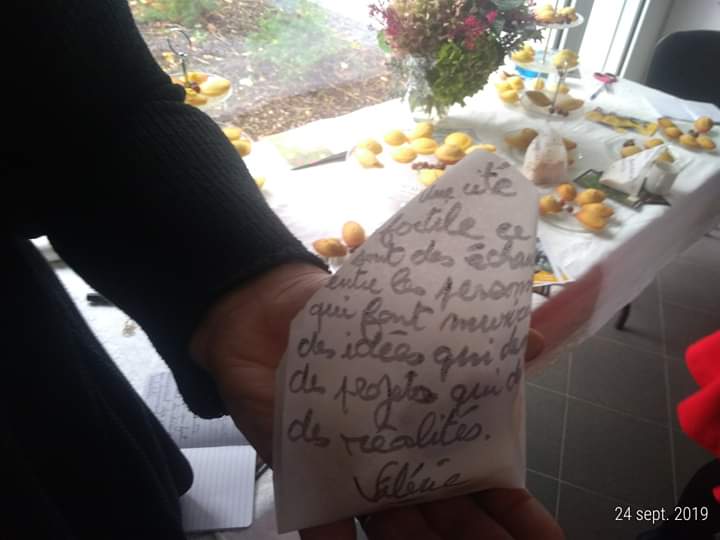 une cité
fertile ce
sont des échan
entre les person
qui font murir
des idées qui de
des projets qui d
des réalités.
Valérie
24 sept. 2019